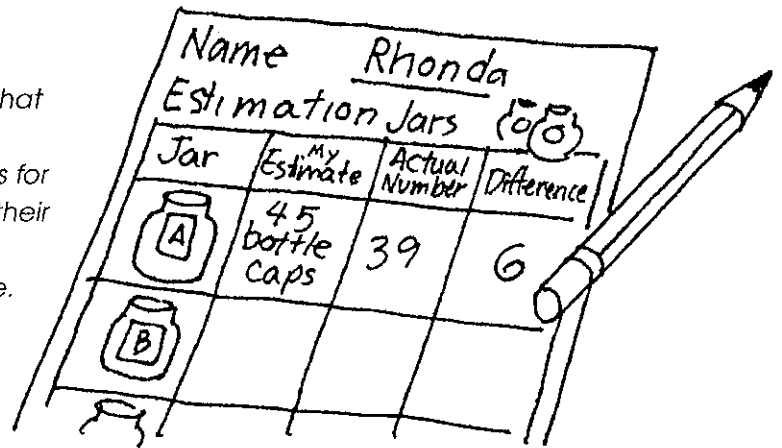 hat
s for
their
e.
Name Rhonda
Estimation Jars
Jar My Estimate Actual Number Difference
A 45 bottle caps 39 6
B